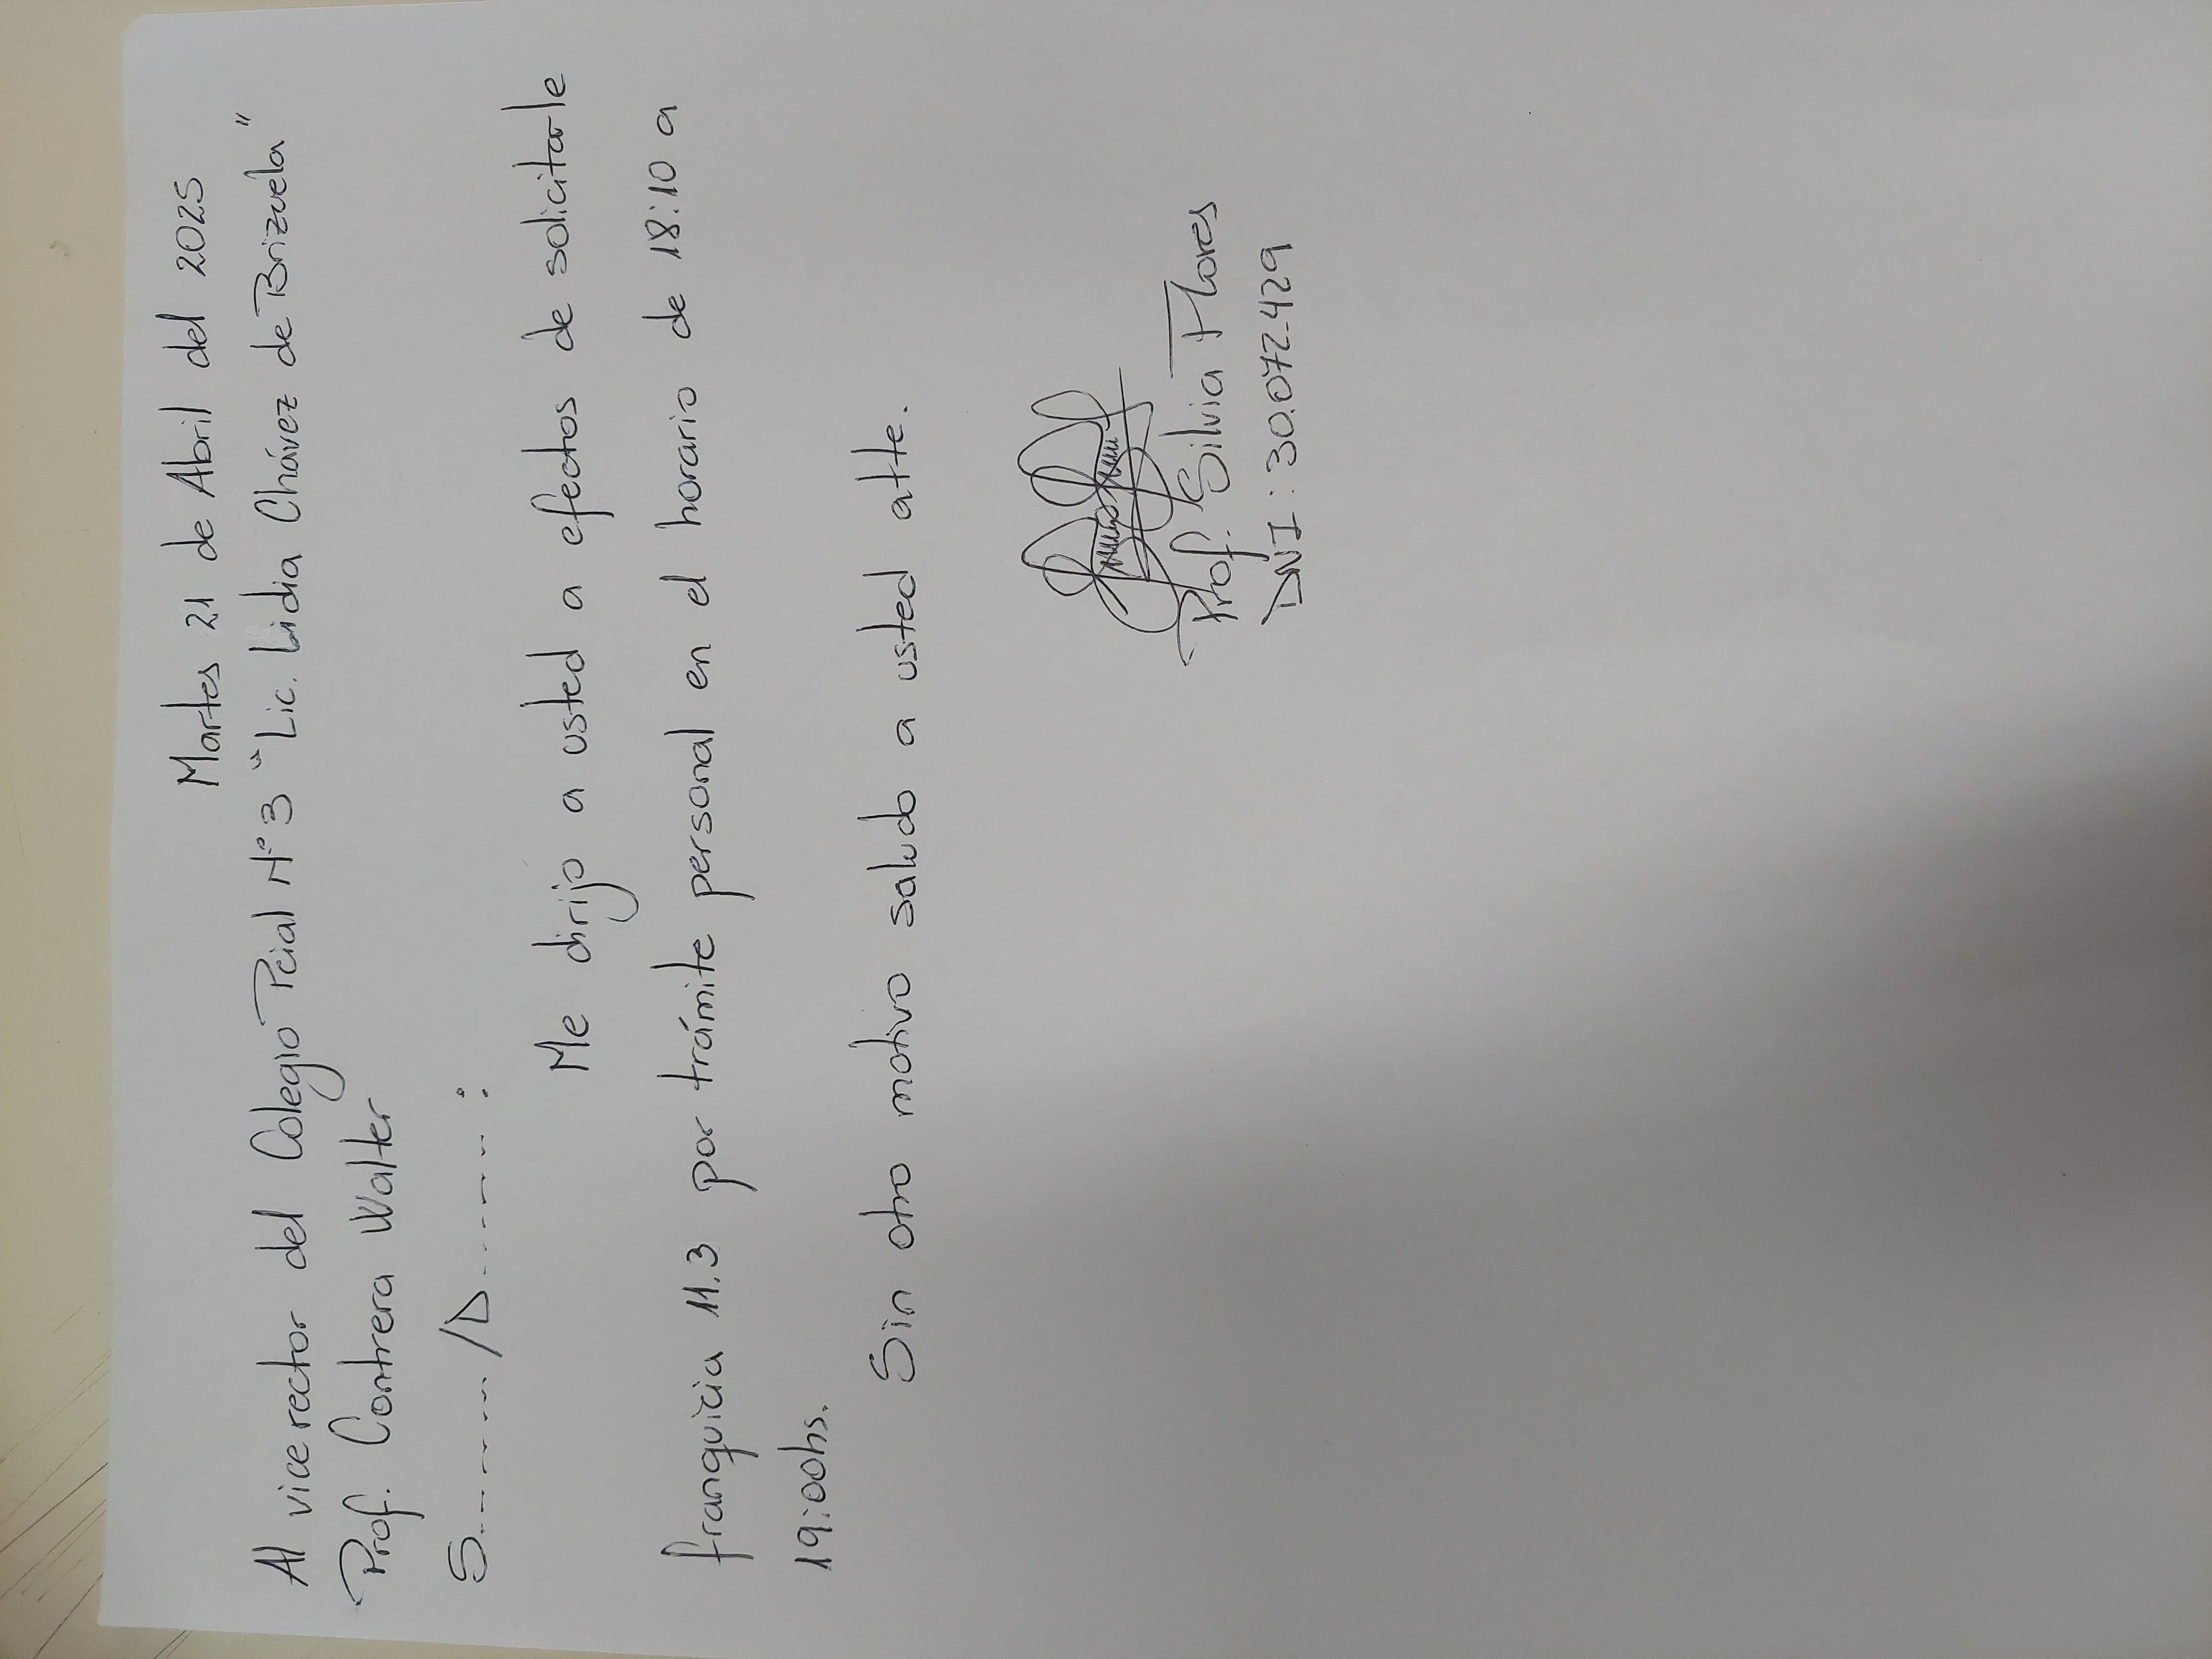 Martes 21 de Abril del 2025
Al vice rector del Colegio Pcial N°3 "Lic. Lidia Chávez de Brizuela"
Prof. Contrera Walter
S........./D.........:
Me dirijo a usted a efectos de solicitarle
franquicia 11.3 por trámite personal en el horario de 18:10 a
19:00hs.
Sin otro motivo saludo a usted atte.
Prof. Silvia Flores
DNI: 30.072.429